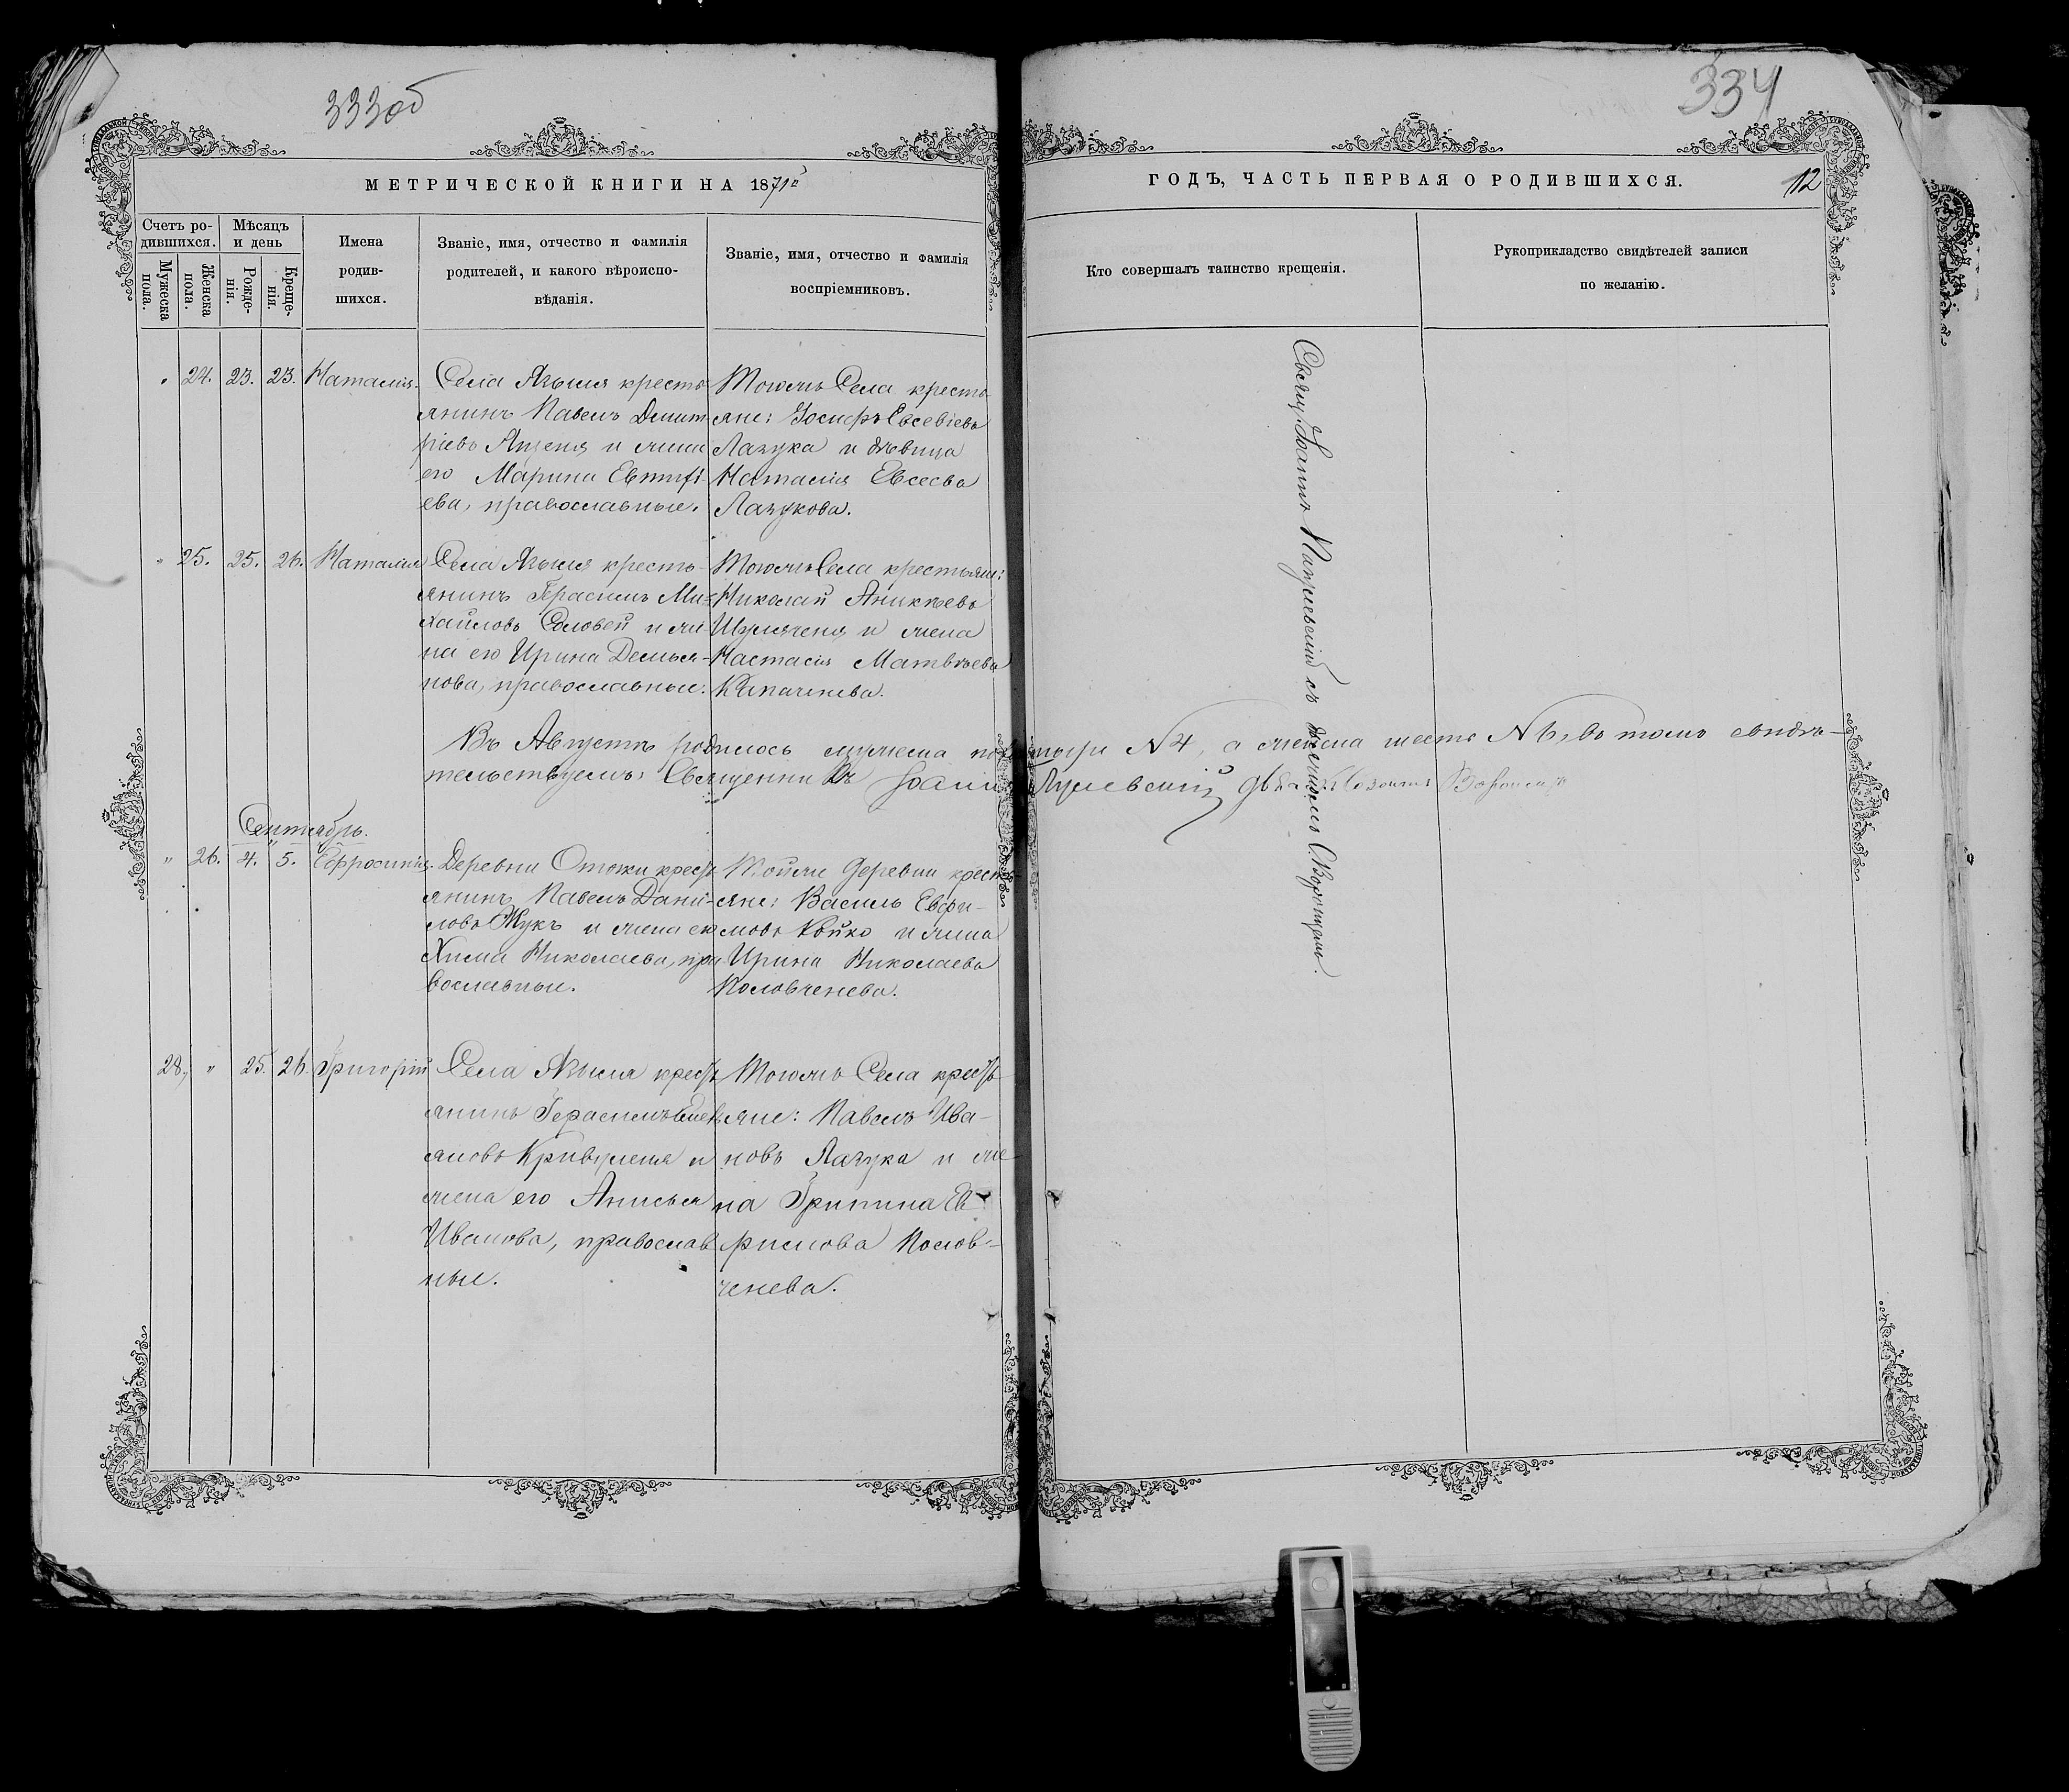 333об
334
МЕТРИЧЕСКОЙ КНИГИ НА 1871й
ГОДЪ, ЧАСТЬ ПЕРВАЯ О РОДИВШИХСЯ.
12
Счетъ ро-
дившихся.
Мужеска
пола.
Женска
пола.
Мѣсяцъ
и день
Рожде-
нія.
Креще-
нія.
Имена
родив-
шихся.
Званіе, имя, отчество и фамилія
родителей, и какого вѣроиспо-
вѣданія.
Званіе, имя, отчество и фамилія
воспріемниковъ.
Кто совершалъ таинство крещенія.
Рукоприкладство свидѣтелей записи
по желанію.
" 24. 23. 23. Наталія.
Села Языля кресть-
янинъ Павелъ Димит
ріевъ и жена
его Марина
ева, православные.
Тогожъ Села кресть-
яне: Іосифъ Евсевіевъ
Лазука и дѣвица
Наталія Евсеева
Лазукова.
" 25. 25. 26. Наталія
Села Языля кресть-
янинъ Герасимъ Ми-
хайловъ Соловей и же-
на его Ирина Демья-
нова, православные.
Тогожъ Села крестьяне:
Николай Аникѣевъ
и жена
Настасія Матвѣева
Въ Августѣ родилось мужеска пола четыре N4, а женска шесть N6, въ томъ свидѣ-
тельствуемъ: Священникъ Іоаннъ
Сентябрь.
" 26. 4. 5. Ефросинія.
Деревни кресть
янинъ Павелъ Дани-
ловъ Жукъ и жена его
Хима Николаева, пра
вославные.
Тойже деревни кресть-
яне: Василь Евфи-
мовъ и жена
Ирина Николаева
Половченева.
28. " 25. 26. Григорій
Села Языля кресть
янинъ Герасимъ
яновъ и
жена его Анисья
Иванова, православ
ные.
Тогожъ Села кресть-
яне: Павелъ Ива-
новъ Лазука и же
на Грипина Ев
фимова Полов-
ченева.
Священ. Іоаннъ съ